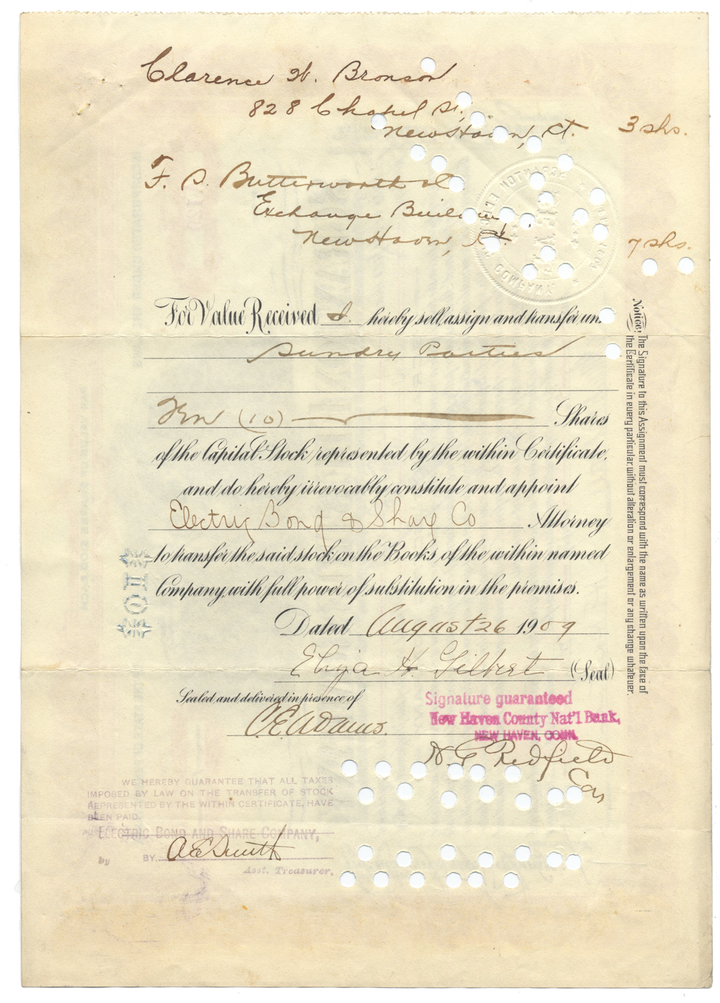 Clarence H. Bronson
828 Chapel St.,
New Haven, Ct. 3 shs.
F. S. Butterworth
Exchange Building
New Haven, Ct. 7 shs.
For Value Received I hereby sell, assign and transfer un
Sundry Parties
Ten (10) Shares
of the Capital Stock represented by the within Certificate,
and do hereby irrevocably constitute and appoint
Electric Bond & Share Co Attorney
to transfer the said stock on the Books of the within named
Company with full power of substitution in the premises.
Dated August 26 1909
Eliza H Gilbert (Seal)
Sealed and delivered in presence of
C. E. Adams.
Signature guaranteed
New Haven County Nat'l Bank,
NEW HAVEN, CONN.
H G Redfield
Cas
WE HEREBY GUARANTEE THAT ALL TAXES
IMPOSED BY LAW ON THE TRANSFER OF STOCK
REPRESENTED BY THE WITHIN CERTIFICATE, HAVE
BEEN PAID.
ELECTRIC BOND AND SHARE COMPANY,
by BY A E Smith
Asst. Treasurer.
Notice: The Signature to this Assignment must correspond with the name as written upon the face of
the Certificate in every particular without alteration or enlargement or any change whatever.